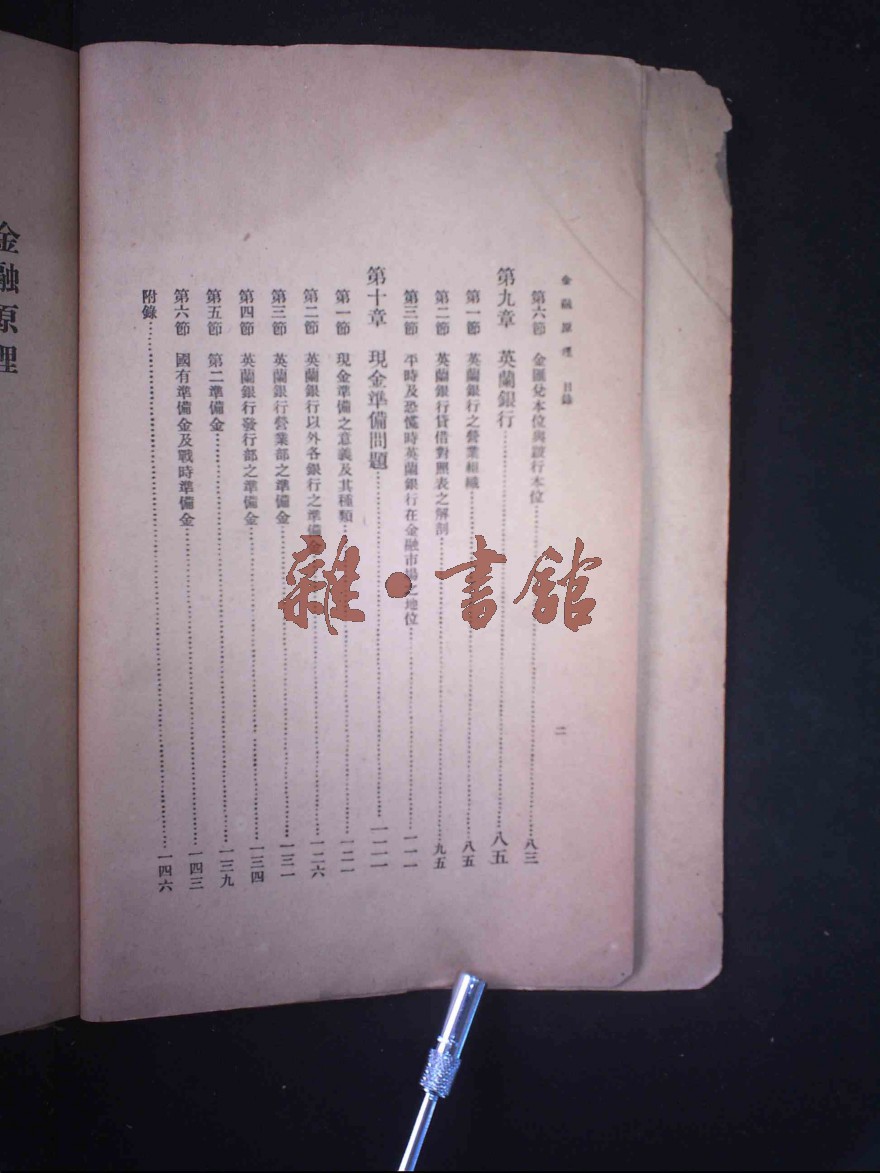 金融原理 目錄
第六節 金匯兌本位與跛行本位……八三
第九章 英蘭銀行……八五
第一節 英蘭銀行之營業組織……八五
第二節 英蘭銀行貸借對照表之解剖……九五
第三節 平時及恐慌時英蘭銀行在金融市場之地位……一一一
第十章 現金準備問題……一二一
第一節 現金準備之意義及其種類……一二一
第二節 英蘭銀行以外各銀行之準備金……一二六
第三節 英蘭銀行營業部之準備金……一三一
第四節 英蘭銀行發行部之準備金……一三四
第五節 第二準備金……一三九
第六節 國有準備金及戰時準備金……一四三
附錄……一四六
二
金融原理
雜·書館